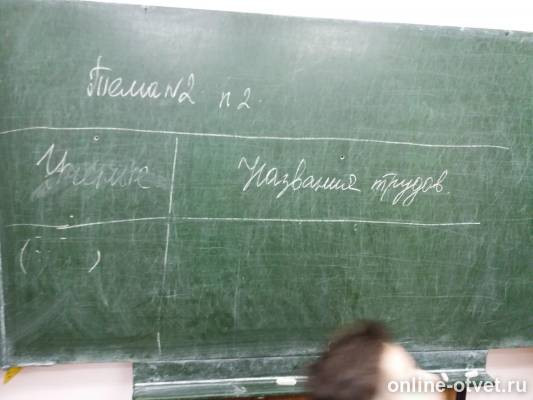 Тема №2 п 2.
Ученые
Названия трудов.
( )
online-otvet.ru